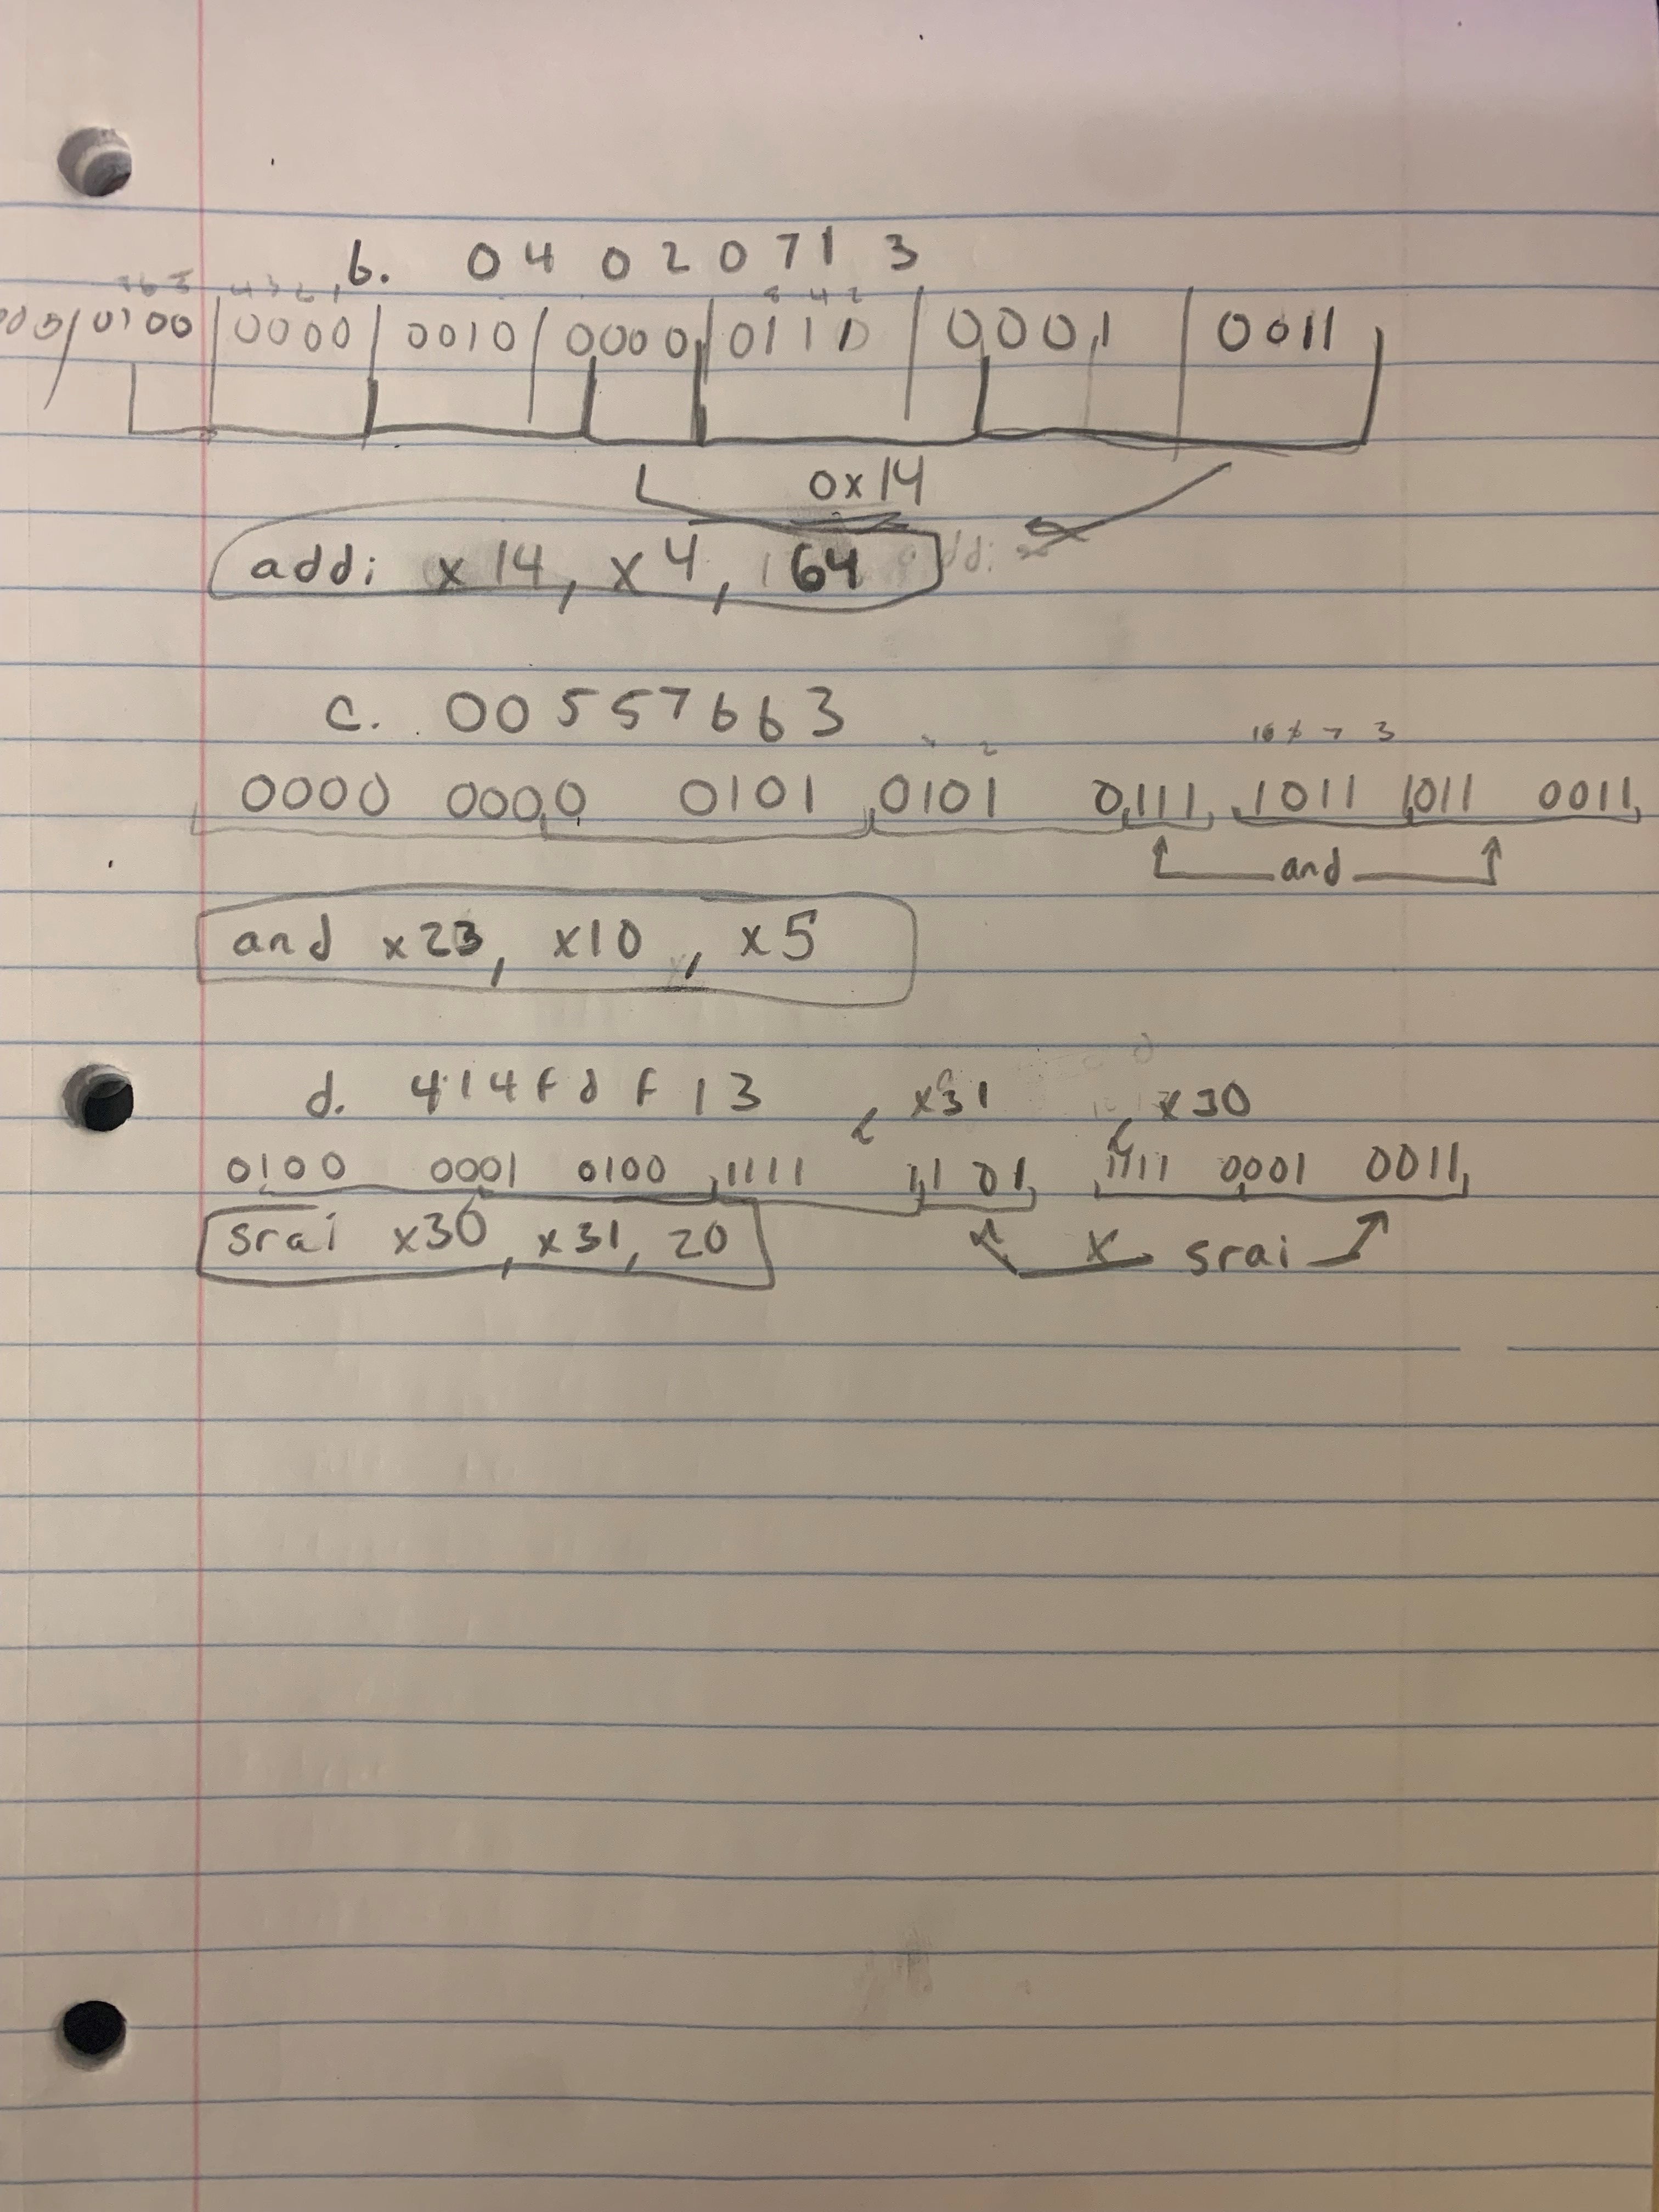 b. 0 4 0 2 0 7 1 3
0100 | 0000 | 0010 | 0000 | 0110 | 0001 | 0011
0x14
addi x14, x4, 64
c. 00557663
0000 0000 0101 0101 0111 1011 1011 0011
and
and x23, x10, x5
d. 414fdf13 x31 x30
0100 0001 0100 1111 1101 1111 0001 0011
srai x30, x31, 20 x srai